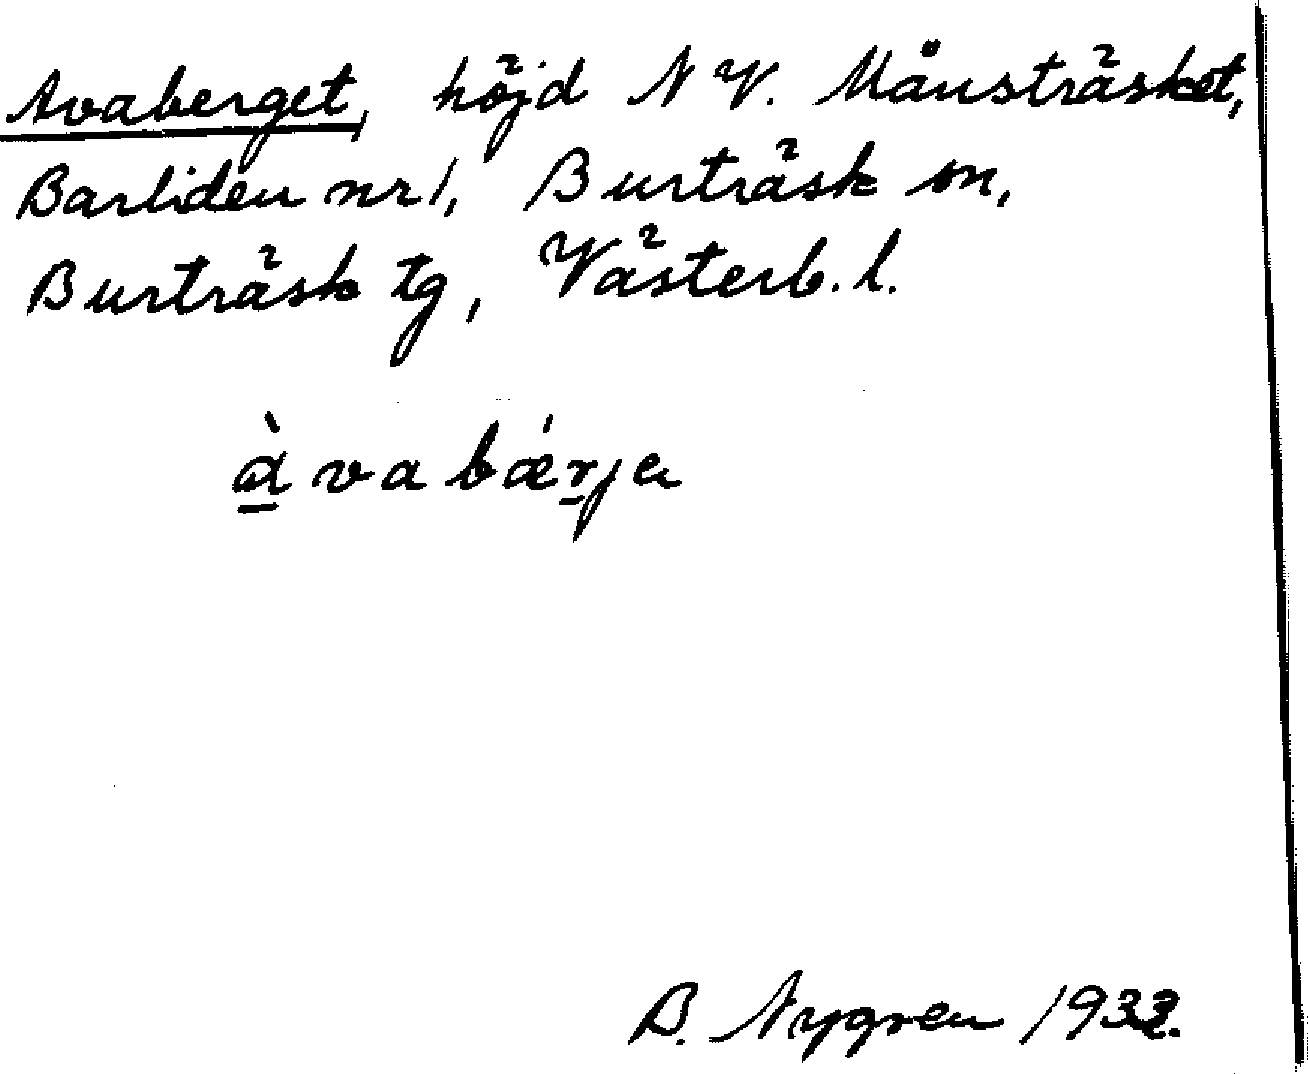 Avaberget, höjd N V. Månsträsket,
Barliden nr 1, Burträsk sn,
Burträsk tg, Västerb. l.
à̱ v a b ǽ r̠ j a
B. Nygren 1933.